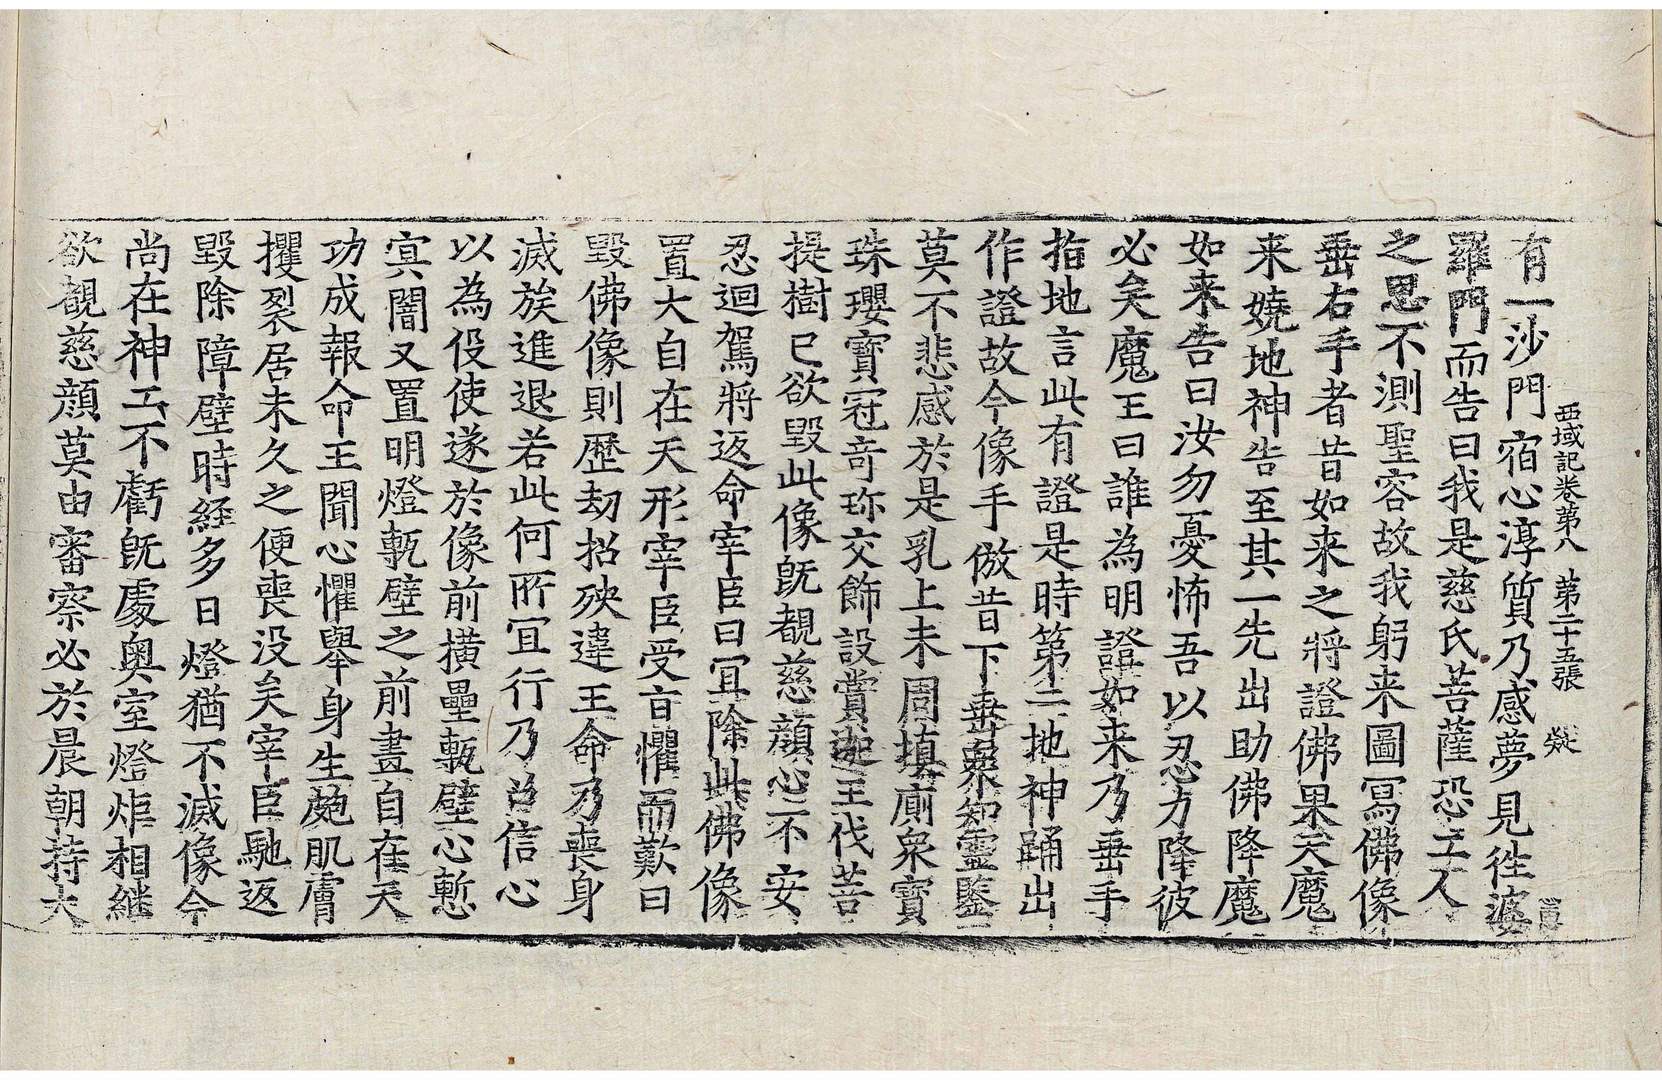 西域記卷第八　第二十五張　㠜
有一沙門宿心淳質乃感夢見往婆
羅門而告曰我是慈氏菩薩恐工人
之思不測聖容故我躬来圖寫佛像
垂右手者昔如来之將證佛果天魔
来嬈地神告至其一先出助佛降魔
如来告曰汝勿憂怖吾以忍力降彼
必矣魔王曰誰為明證如来乃垂手
指地言此有證是時第二地神踊出
作證故今像手倣昔下垂衆知靈鑒
莫不悲感於是乳上未周填廁衆寶
珠瓔寶冠奇珎交飾設賞迦王伐菩
提樹已欲毀此像旣覩慈顔心不安
忍迴駕將返命宰臣曰冝除此佛像
置大自在天形宰臣受旨懼而歎曰
毀佛像則歴劫招殃違王命乃喪身
滅族進退若此何所冝行乃召信心
以為伇使遂於像前橫壘甎壁心慙
冥闇又置明燈甎壁之前畫自在天
功成報命王聞心懼舉身生皰肌膚
攫裂居未久之便喪没矣宰臣馳返
毀除障壁時経多日燈猶不滅像今
尚在神工不虧旣處奧室燈炬相継
欲覩慈顔莫由審察必於晨朝持大